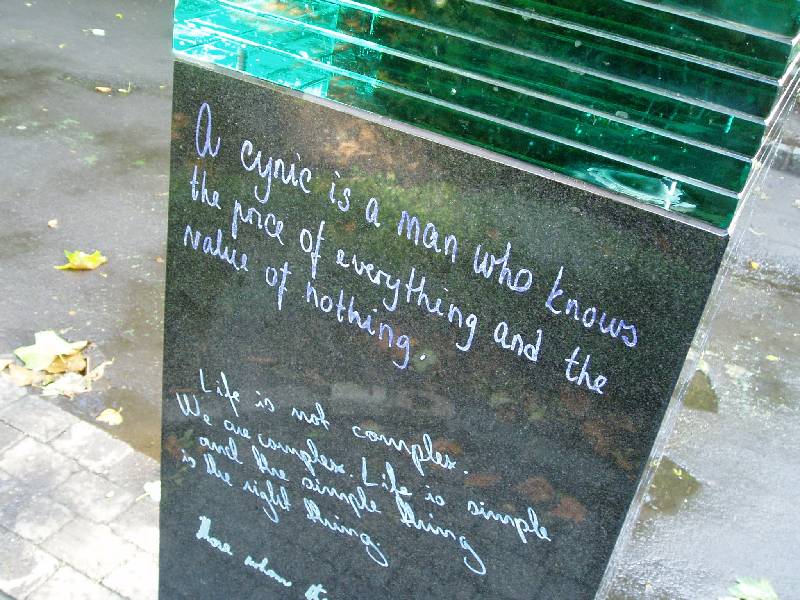 A cynic is a man who knows
the price of everything and the
value of nothing.
Life is not complex.
We are complex. Life is simple
and the simple thing
is the right thing.
those whom th